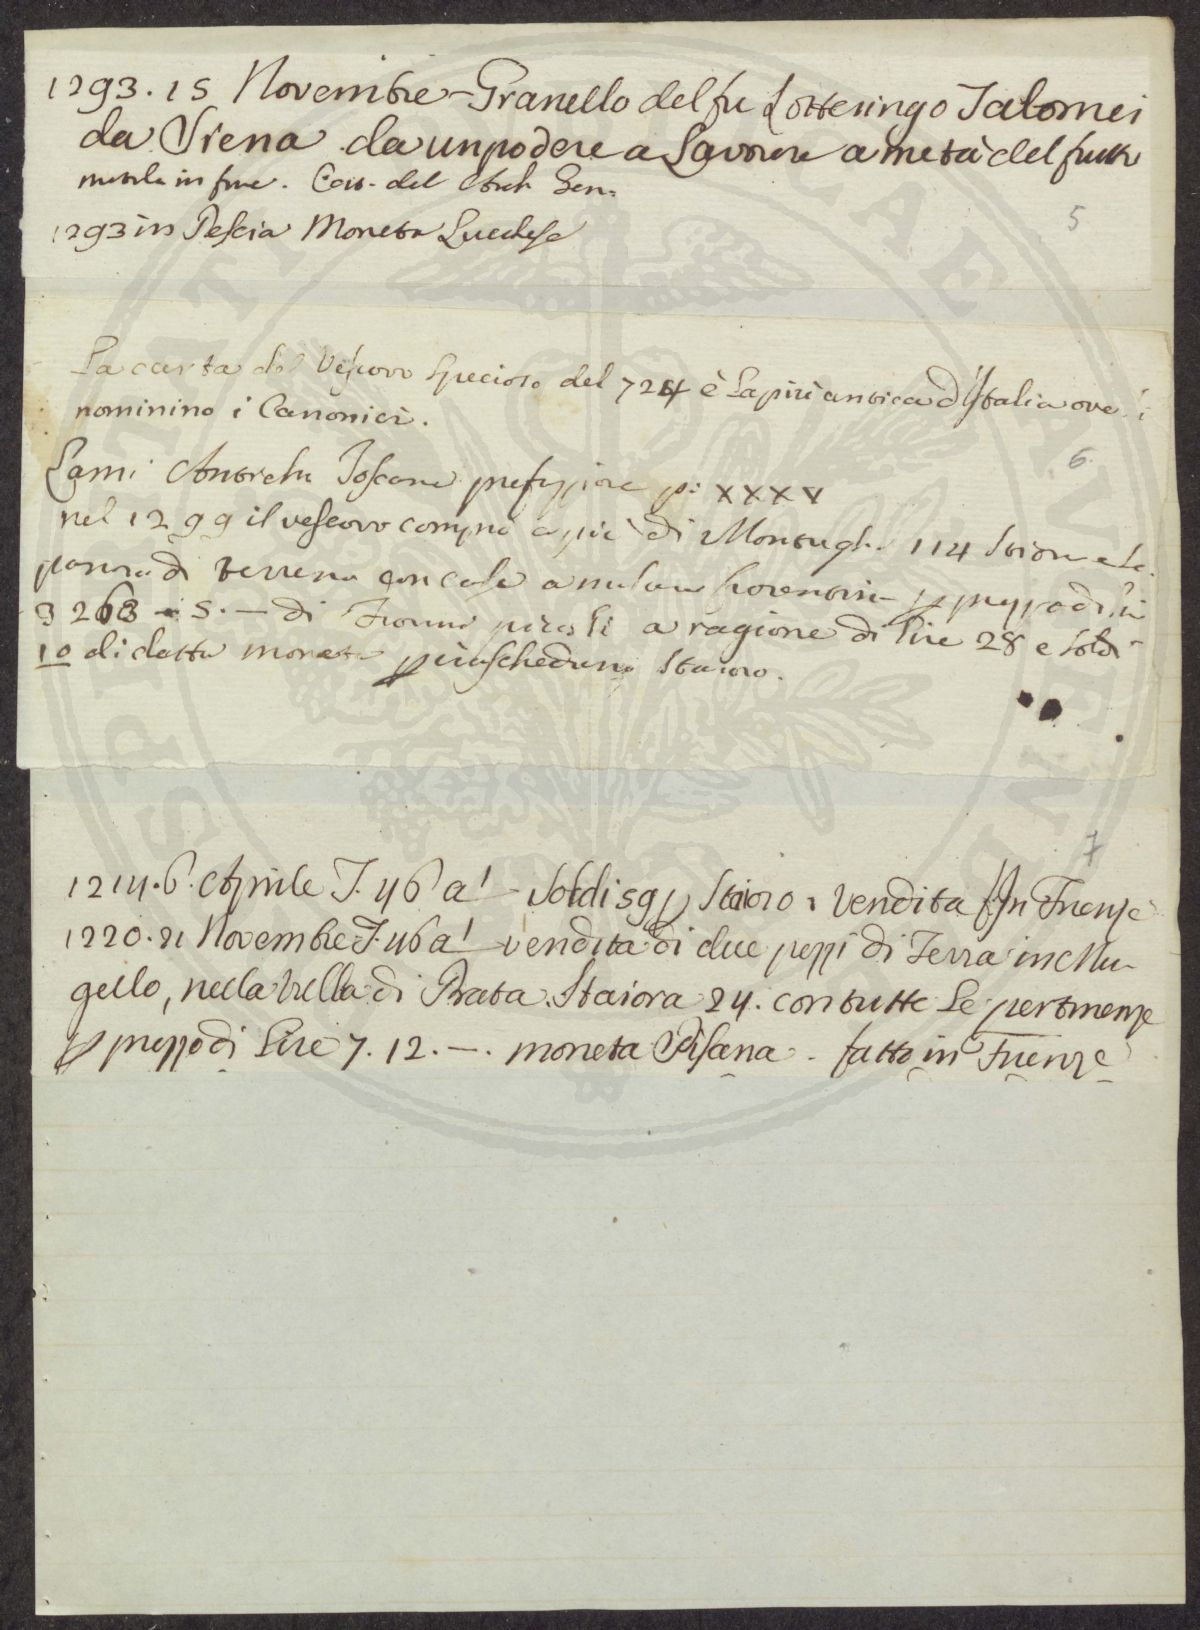 1293. 15 Novembre - Granello del fu Lotteringo Talomei
da Siena da un podere a Lavorare a metà del frutto
in fine. Cart. del Arch Gen:
1293 in Pescia Moneta Lucchese
5
La carta del Vescovo Specioso del 724 è la più antica d'Italia ove si
nominino i Canonici.
6.
Lami Antich. Toscane prefazione p: XXXV
nel 1299 il vescovo comprò a piè di Montughi 114 Stiora e le
panora di terreno con case a misura fiorentina p prezzo di Lire
3268 - 5. — di Fiorini piccoli a ragione di lire 28 e Soldi
10 di detta moneta p ciascheduno Staioro.
7
1214. 6. Aprile T. 46 a1 - Soldi 59 p Staioro. vendita In Firenze
1220. 21 Novembre T. 46 a1 vendita di due pezzi di Terra in Mu-
gello, nella villa di Prata Staiora 24. con tutte le pertinenze
p prezzo di Lire 7. 12. —. moneta Pisana - fatto in Firenze